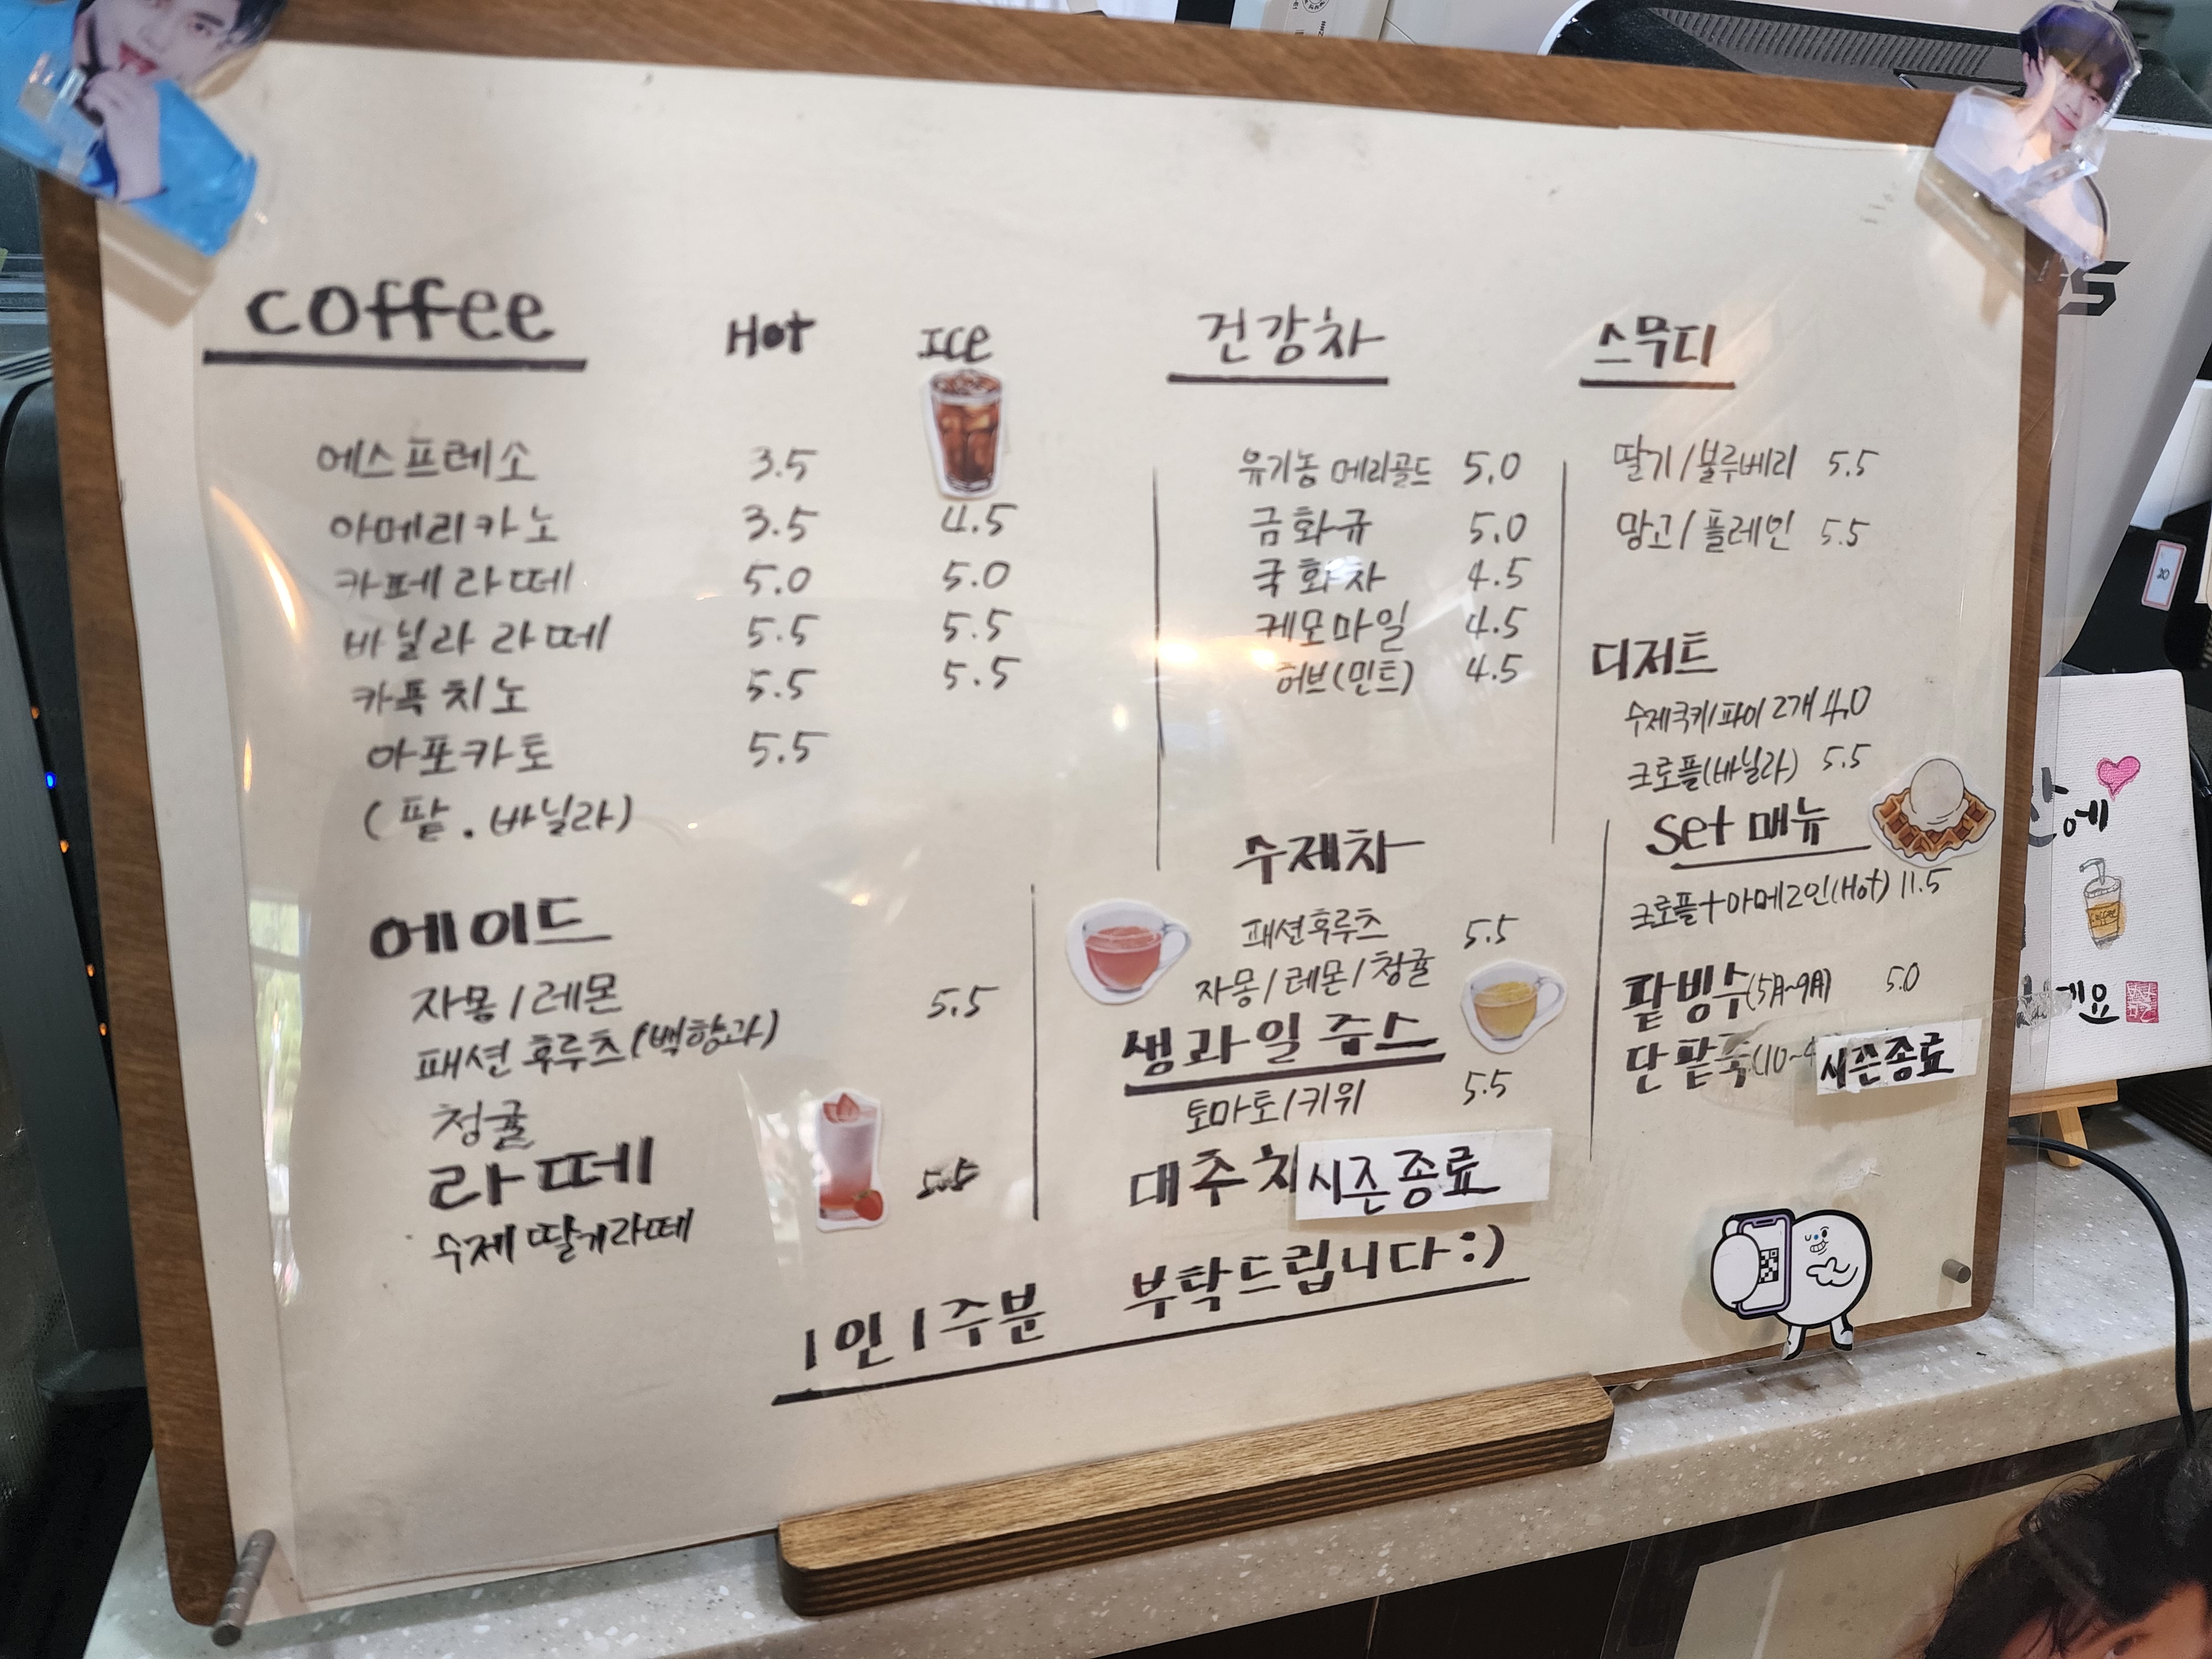 coffee
Hot Ice
에스프레소 3.5
아메리카노 3.5 4.5
카페라떼 5.0 5.0
바닐라 라떼 5.5 5.5
카푹치노 5.5 5.5
아포카토 5.5
(팥.바닐라)
에이드
자몽/레몬 5.5
패션후루츠(백향과)
청귤
라떼 5.5
수제딸기라떼
건강차
유기농 메리골드 5.0
금화규 5.0
국화차 4.5
케모마일 4.5
허브(민트) 4.5
수제차
패션후루츠 5.5
자몽/레몬/청귤
생과일쥬스
토마토/키위 5.5
대추차 시즌종료
스무디
딸기/블루베리 5.5
망고/플레인 5.5
디저트
수제쿠키/파이 2개 4.0
크로플(바닐라) 5.5
Set 메뉴
크로플+아메2인(Hot) 11.5
팥빙수(5月~9月) 5.0
단팥죽(10~4 시즌종료
1인1주분 부탁드립니다:)
20
에
게요